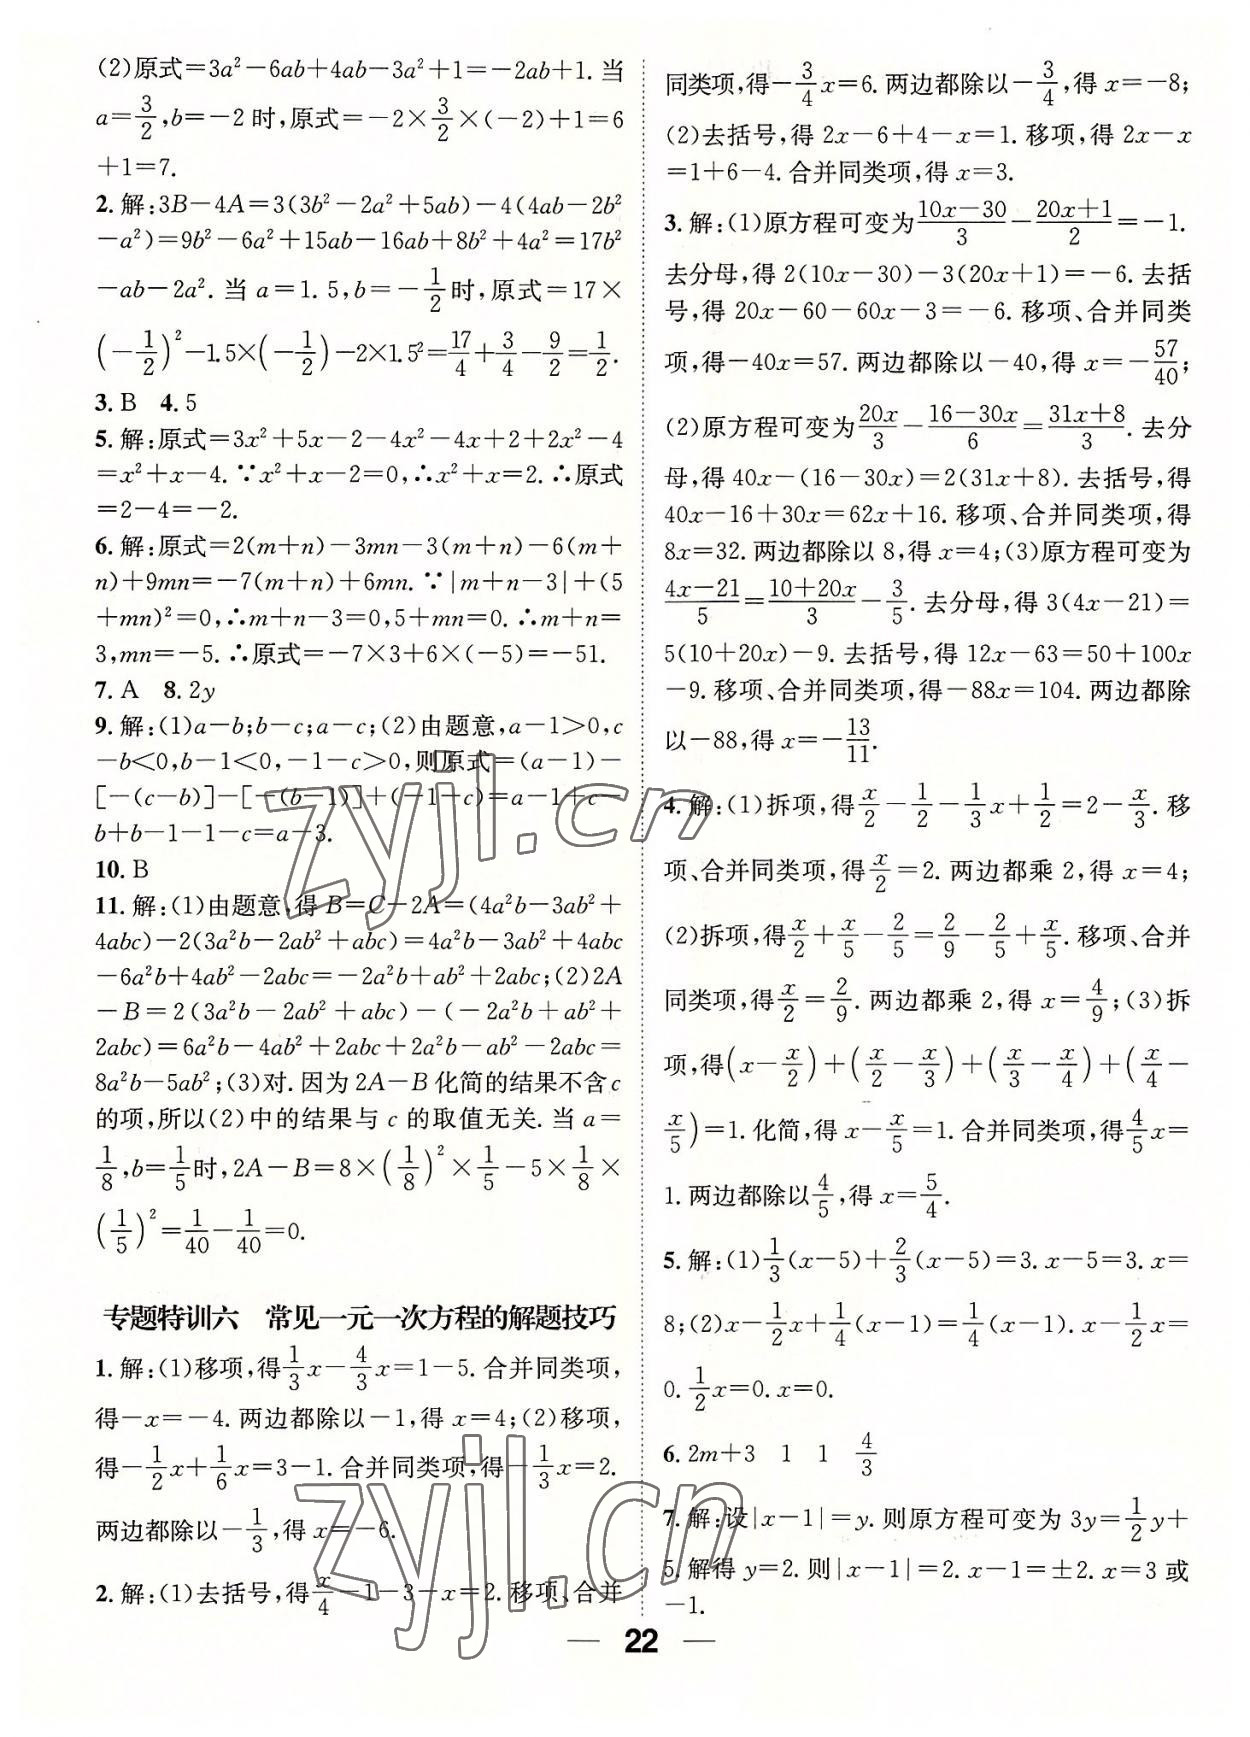 (2)原式=3a²-6ab+4ab-3a²+1=-2ab+1. 当
a=3/2,b=-2时,原式=-2×3/2×(-2)+1=6
+1=7.
2. 解:3B-4A=3(3b²-2a²+5ab)-4(4ab-2b²
-a²)=9b²-6a²+15ab-16ab+8b²+4a²=17b²
-ab-2a². 当 a=1.5,b=-1/2时,原式=17×
(-1/2)²-1.5×(-1/2)-2×1.5²=17/4+3/4-9/2=1/2.
3. B 4. 5
5. 解:原式=3x²+5x-2-4x²-4x+2+2x²-4
=x²+x-4. ∵x²+x-2=0,∴x²+x=2. ∴原式
=2-4=-2.
6. 解:原式=2(m+n)-3mn-3(m+n)-6(m+
n)+9mn=-7(m+n)+6mn. ∵|m+n-3|+(5
+mn)²=0,∴m+n-3=0,5+mn=0. ∴m+n=
3,mn=-5. ∴原式=-7×3+6×(-5)=-51.
7. A 8. 2y
9. 解:(1)a-b;b-c;a-c;(2)由题意,a-1>0,c
-b<0,b-1<0,-1-c>0,则原式=(a-1)-
[-(c-b)]-[-(b-1)]+(-1-c)=a-1+c-
b+b-1-1-c=a-3.
10. B
11. 解:(1)由题意,得 B=C-2A=(4a²b-3ab²+
4abc)-2(3a²b-2ab²+abc)=4a²b-3ab²+4abc
-6a²b+4ab²-2abc=-2a²b+ab²+2abc;(2)2A
-B=2(3a²b-2ab²+abc)-(-2a²b+ab²+
2abc)=6a²b-4ab²+2abc+2a²b-ab²-2abc=
8a²b-5ab²;(3)对. 因为 2A-B 化简的结果不含 c
的项,所以(2)中的结果与 c 的取值无关. 当 a=
1/8,b=1/5时,2A-B=8×(1/8)²×1/5-5×1/8×
(1/5)²=1/40-1/40=0.
专题特训六 常见一元一次方程的解题技巧
1. 解:(1)移项,得1/3x-4/3x=1-5. 合并同类项,
得-x=-4. 两边都除以-1,得 x=4;(2)移项,
得-1/2x+1/6x=3-1. 合并同类项,得-1/3x=2.
两边都除以-1/3,得 x=-6.
2. 解:(1)去括号,得x/4-1-3-x=2. 移项、合并
同类项,得-3/4x=6. 两边都除以-3/4,得 x=-8;
(2)去括号,得 2x-6+4-x=1. 移项,得 2x-x
=1+6-4. 合并同类项,得 x=3.
3. 解:(1)原方程可变为(10x-30)/3-(20x+1)/2=-1.
去分母,得 2(10x-30)-3(20x+1)=-6. 去括
号,得 20x-60-60x-3=-6. 移项、合并同类
项,得-40x=57. 两边都除以-40,得 x=-57/40;
(2)原方程可变为20x/3-(16-30x)/6=(31x+8)/3. 去分
母,得 40x-(16-30x)=2(31x+8). 去括号,得
40x-16+30x=62x+16. 移项、合并同类项,得
8x=32. 两边都除以 8,得 x=4;(3)原方程可变为
(4x-21)/5=(10+20x)/3-3/5. 去分母,得 3(4x-21)=
5(10+20x)-9. 去括号,得 12x-63=50+100x
-9. 移项、合并同类项,得-88x=104. 两边都除
以-88,得 x=-13/11.
4. 解:(1)拆项,得x/2-1/2-1/3x+1/2=2-x/3. 移
项、合并同类项,得x/2=2. 两边都乘 2,得 x=4;
(2)拆项,得x/2+x/5-2/5=2/9-2/5+x/5. 移项、合并
同类项,得x/2=2/9. 两边都乘 2,得 x=4/9;(3)拆
项,得(x-x/2)+(x/2-x/3)+(x/3-x/4)+(x/4-
x/5)=1. 化简,得 x-x/5=1. 合并同类项,得4/5x=
1. 两边都除以4/5,得 x=5/4.
5. 解:(1)1/3(x-5)+2/3(x-5)=3. x-5=3. x=
8;(2)x-1/2x+1/4(x-1)=1/4(x-1). x-1/2x=
0. 1/2x=0. x=0.
6. 2m+3 1 1 4/3
7. 解:设|x-1|=y. 则原方程可变为 3y=1/2y+
5. 解得 y=2. 则|x-1|=2. x-1=±2. x=3 或
-1.
— 22 —
zyjl.cn
zyjl.cn